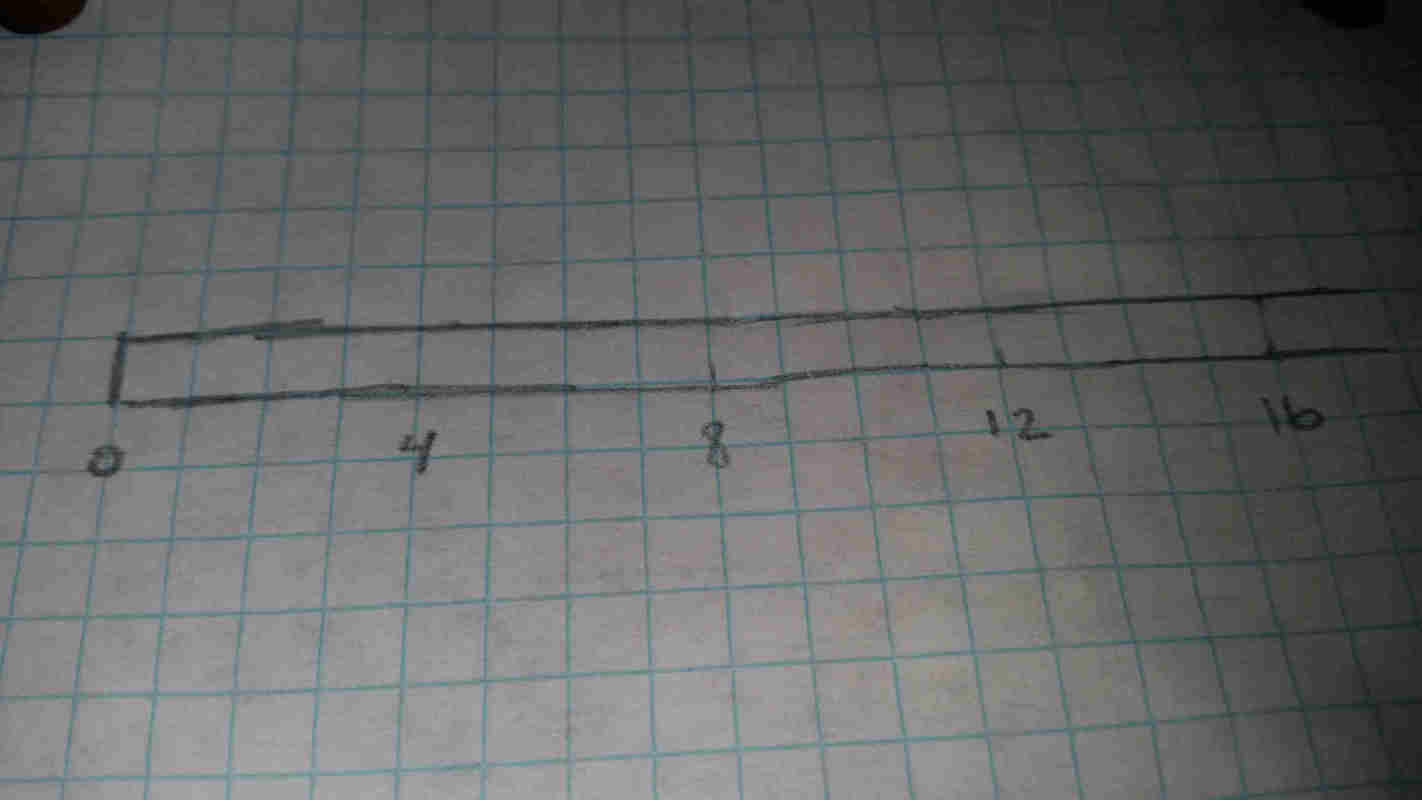 0 4 8 12 16